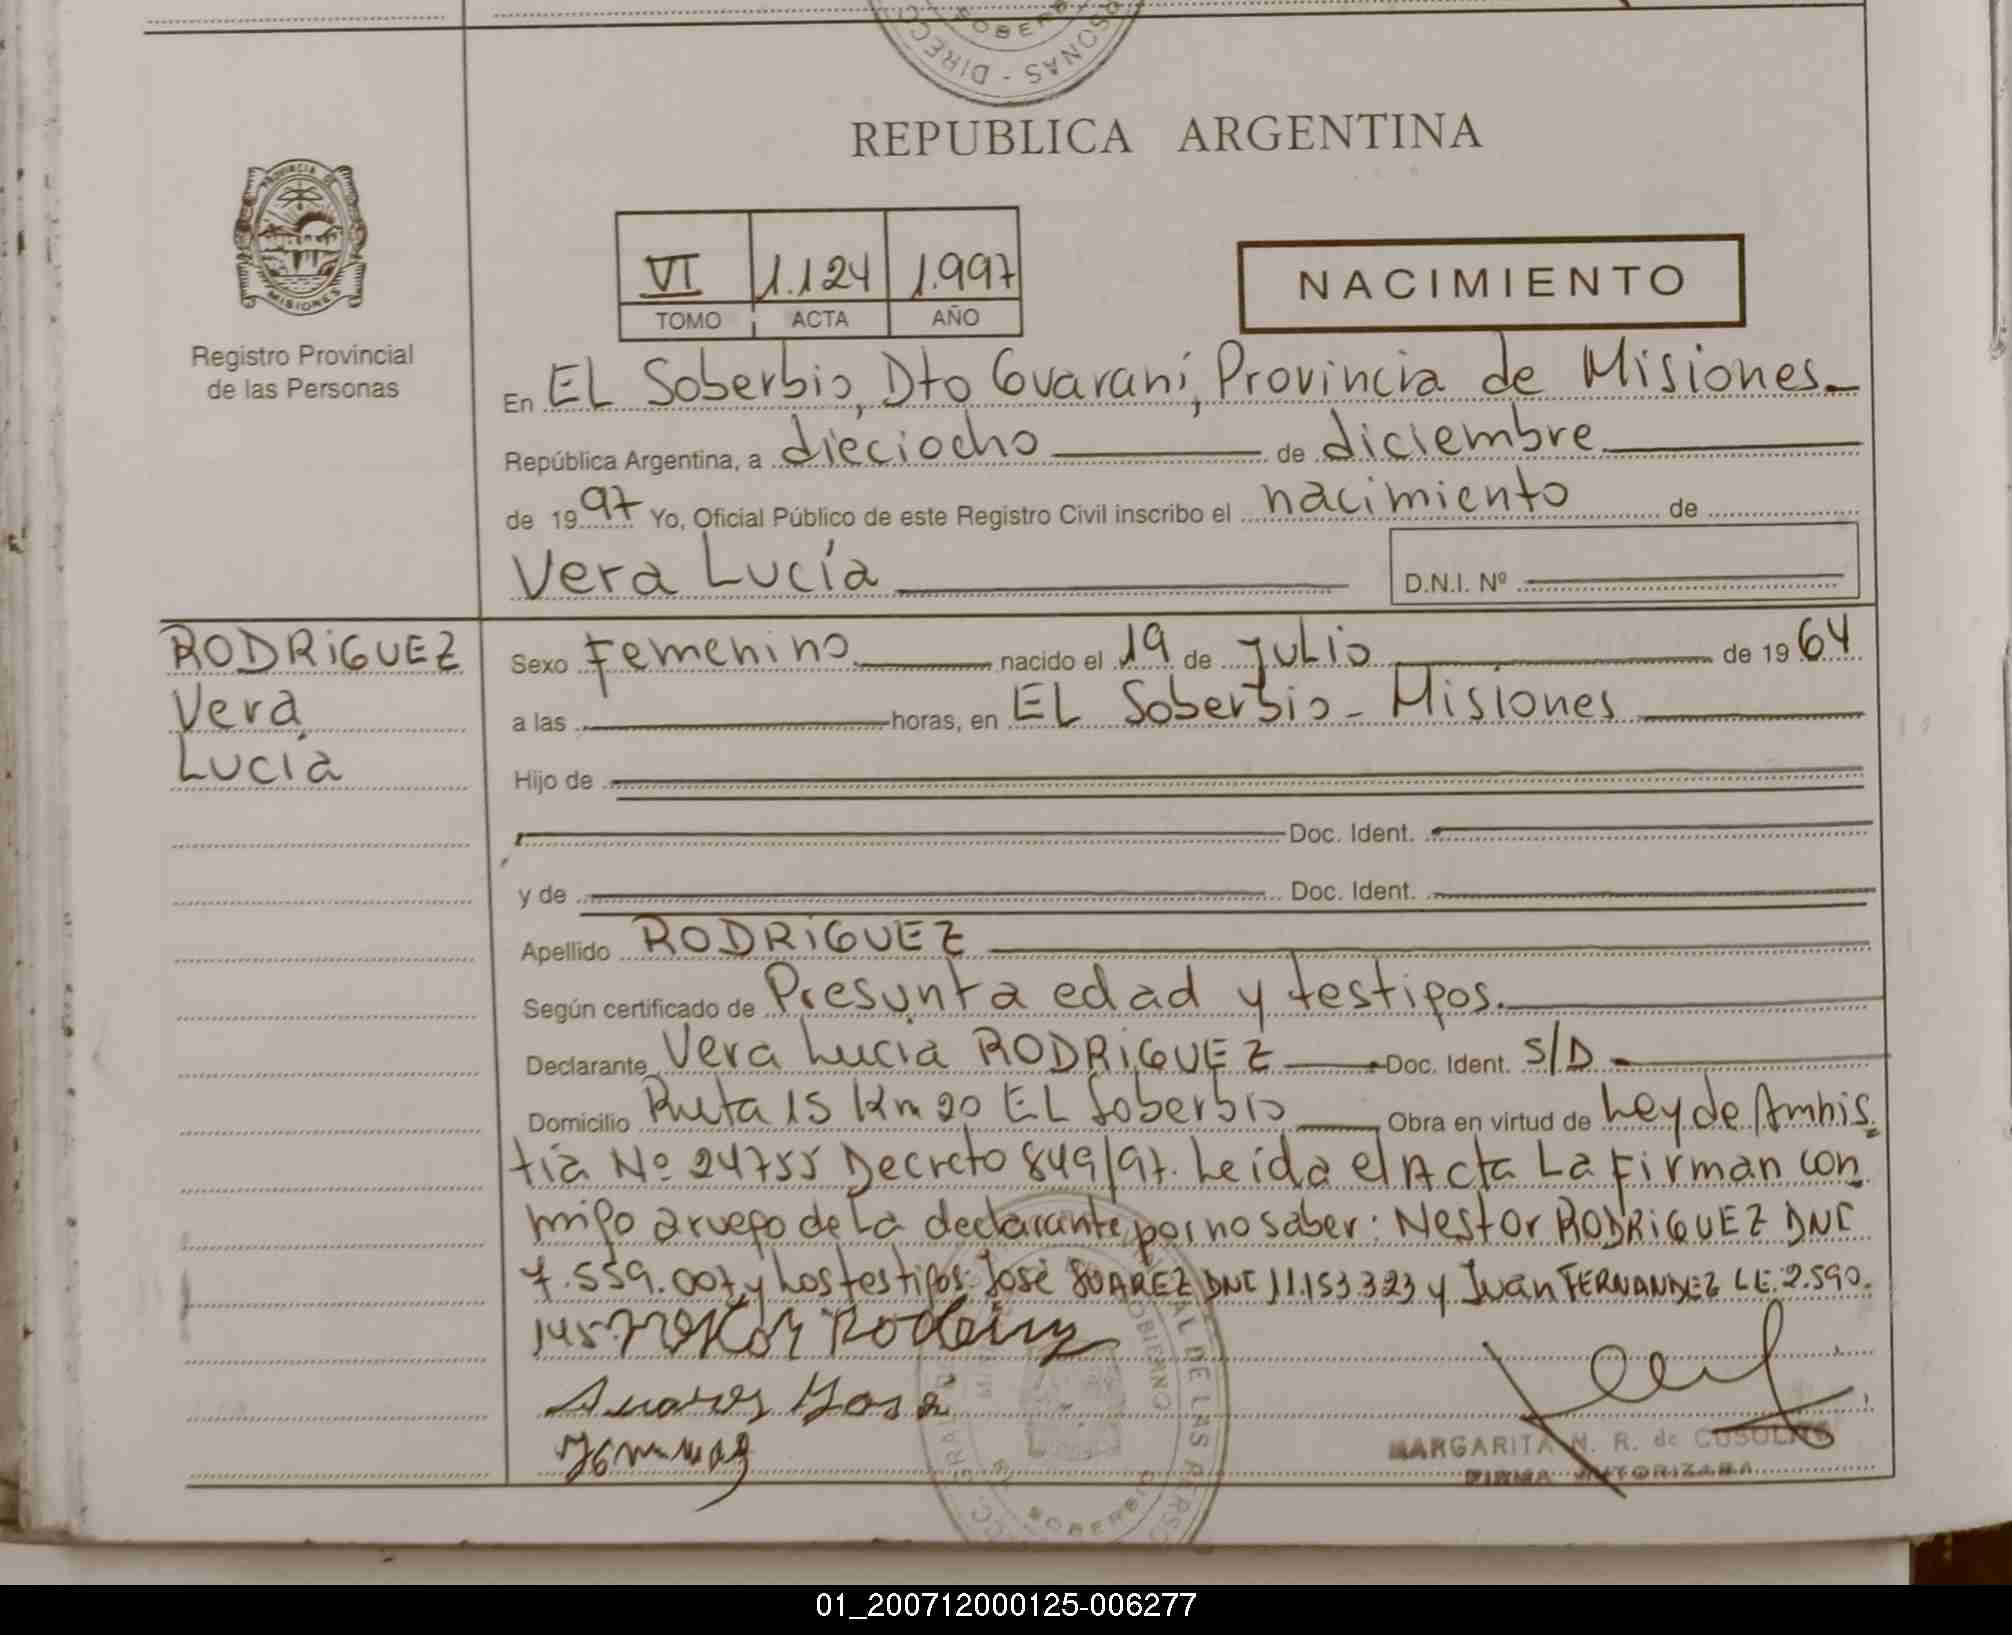 SOBERBIO
DIRECC
PERSONAS -
REPUBLICA ARGENTINA
PROVINCIA DE
MISIONES
Registro Provincial
de las Personas
VI 1.124 1.997
TOMO ACTA AÑO
NACIMIENTO
En EL Soberbio, Dto Guaraní, Provincia de Misiones
República Argentina, a dieciocho de diciembre
de 1997 Yo, Oficial Público de este Registro Civil inscribo el nacimiento de
Vera Lucía D.N.I. Nº
RODRiGUEZ
Vera
Lucía
Sexo Femenino nacido el 19 de julio de 1964
a las horas, en EL Soberbio - Misiones
Hijo de
Doc. Ident.
y de Doc. Ident.
Apellido RODRiGUEZ
Según certificado de Presunta edad y testigos.
Declarante Vera Lucia RODRiGUEZ Doc. Ident. S/D
Domicilio Ruta 15 Km 20 EL Soberbio Obra en virtud de Ley de Amnis
tia Nº 24755 Decreto 849/97. Leída el Acta La Firman con
migo a ruego de La declarante por no saber: Nestor RODRiGUEZ DNI
7.559.007 y Los testigos: José SUAREZ DNI 11.153.323 y Juan FERNANDEZ L.E. 2.590.
145
Suares José
MARGARITA N. R. de
FIRMA AUTORIZADA
SOBERBIO
01_200712000125-006277